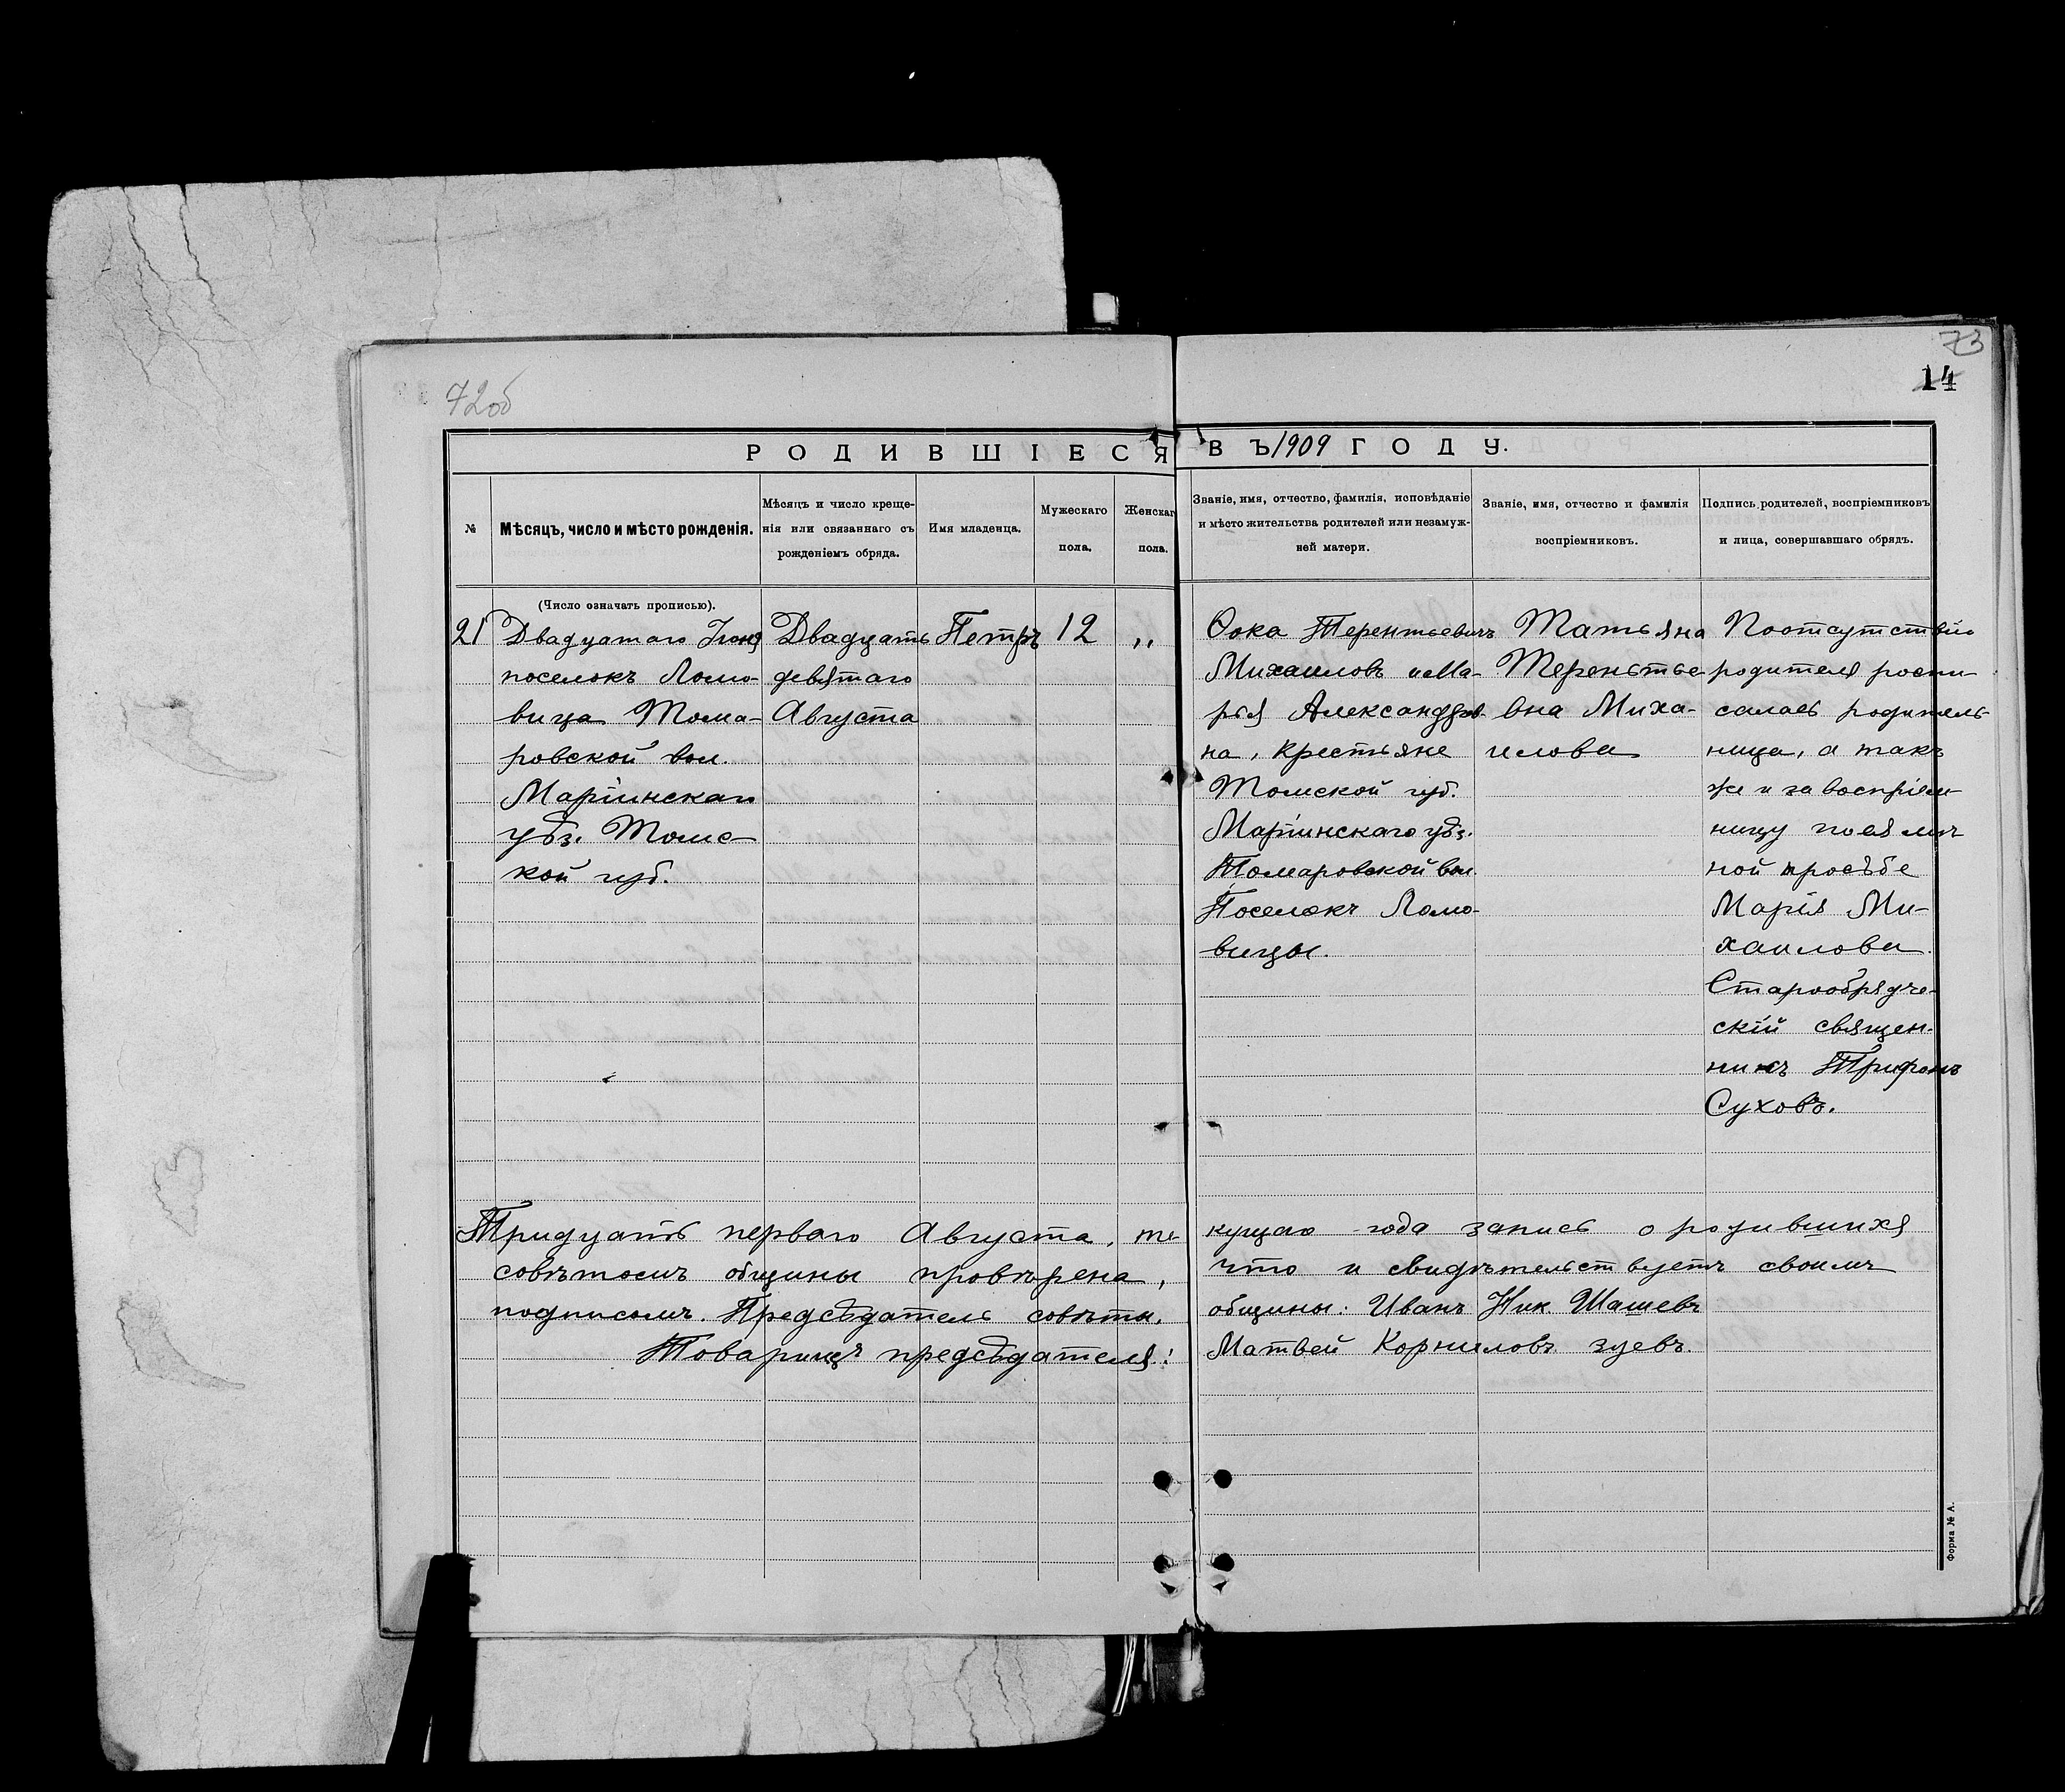 73
14
72об
РОДИВШІЕСЯ ВЪ 1909 ГОДУ.
№
Мѣсяцъ, число и мѣсто рожденія.
Мѣсяцъ и число креще-
нія или связаннаго съ
рожденіемъ обряда.
Имя младенца.
Мужескаго
пола.
Женскаг
пола.
Званіе, имя, отчество, фамилія, исповѣданіе
и мѣсто жительства родителей или незамуж-
ней матери.
Званіе, имя, отчество и фамилія
воспріемниковъ.
Подпись родителей, воспріемниковъ
и лица, совершавшаго обрядъ.
(Число означать прописью).
21
Двадцатаго Іюня
поселокъ Ломо-
вица Тома-
ровской вол.
Маріинскаго
уѣз. Томс-
кой губ.
Двадцать
девятаго
Августа
Петръ
12
„
Фока Терентьевичъ
Михаиловъ и Ма-
рья Александров-
на, крестьяне
Томской губ.
Маріинскаго уѣз.
Томаровской вол.
Поселокъ Ломо-
вицы.
Татьяна
Терентье-
вна Миха-
илова
По отсутствію
родителя роспи-
салась родитель-
ница, а такъ
же и за воспріем-
ницу по ея лич
ной просьбе
Марія Ми-
хаилова.
Старообрядче-
скій священ-
никъ Трифонъ
Суховъ.
Тридцать перваго Августа, те кущаго года запись о родившихся
совѣтомъ общины провѣрена, что и свидѣтельствуетъ своимъ
подписомъ. Предсѣдатель совѣта, общины: Иванъ Ник. Шашевъ
Товарищъ предсѣдателя: Матвей Корниловъ зуевъ.
Форма № А.